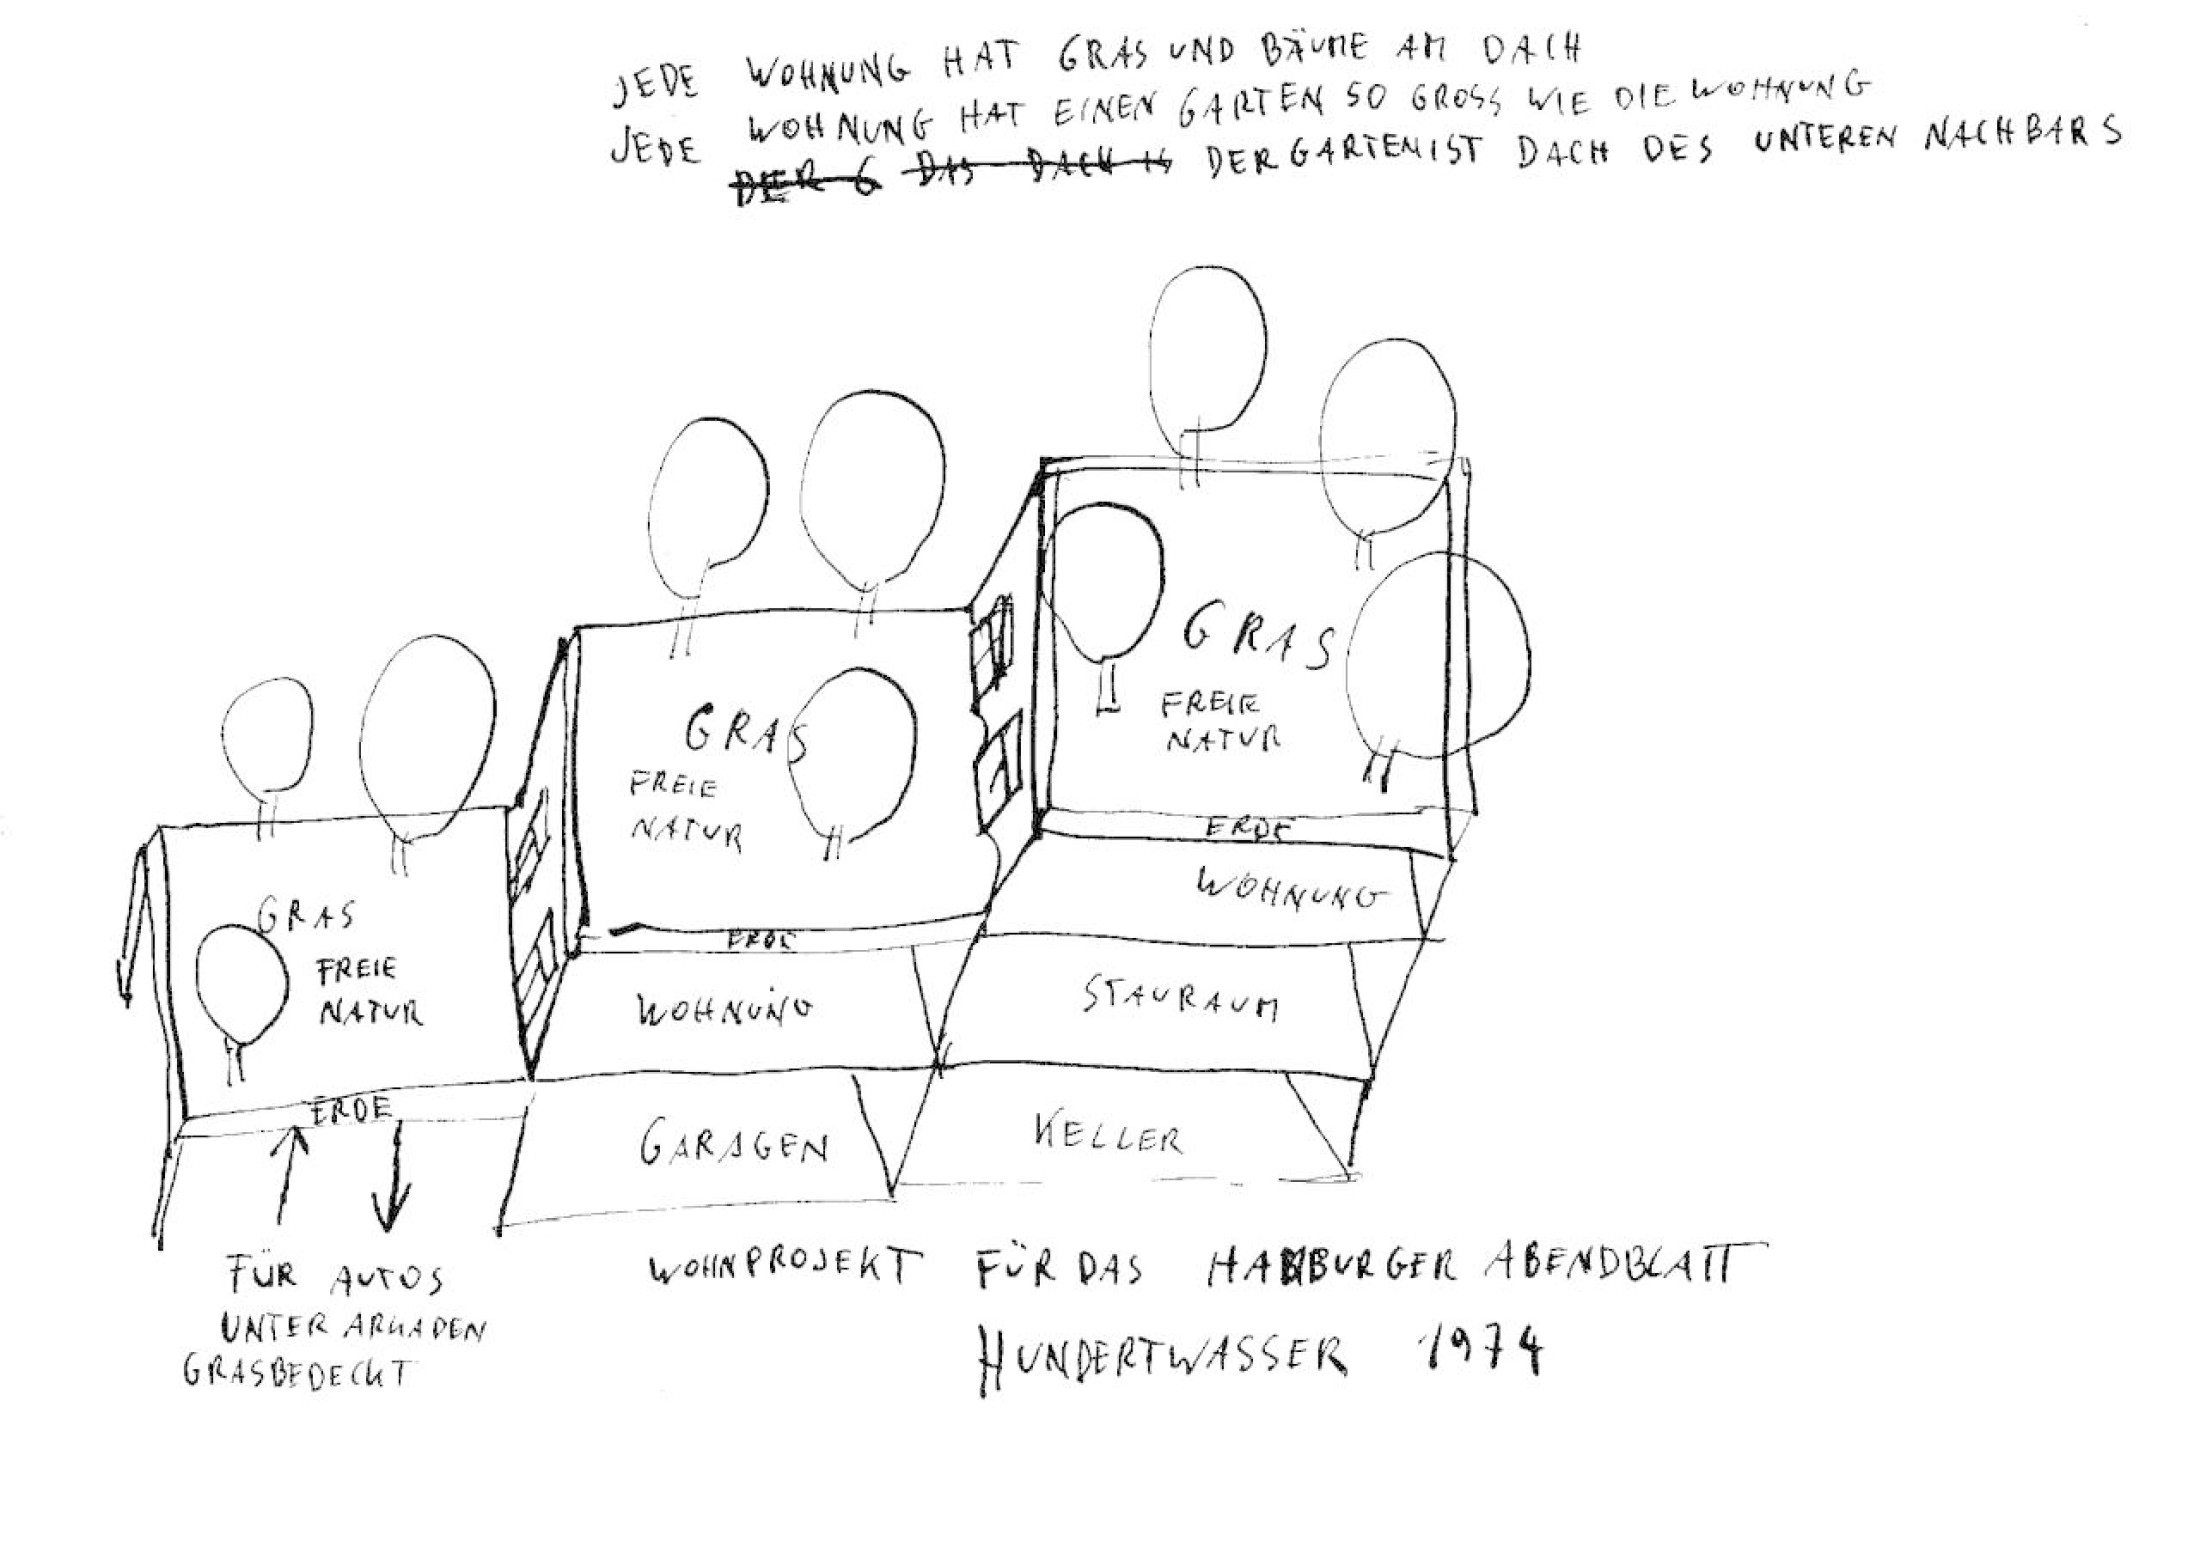 JEDE WOHNUNG HAT GRAS UND BÄUME AM DACH
JEDE WOHNUNG HAT EINEN GARTEN SO GROSS WIE DIE WOHNUNG
DER G DAS DACH IS DER GARTEN IST DACH DES UNTEREN NACHBARS
GRAS
FREIE
NATUR
ERDE
WOHNUNG
STAURAUM
KELLER
GRAS
FREIE
NATUR
ERDE
WOHNUNG
GARAGEN
GRAS
FREIE
NATUR
ERDE
FÜR AUTOS
UNTER ARKADEN
GRASBEDECKT
WOHNPROJEKT FÜR DAS HAMBURGER ABENDBLATT
HUNDERTWASSER 1974